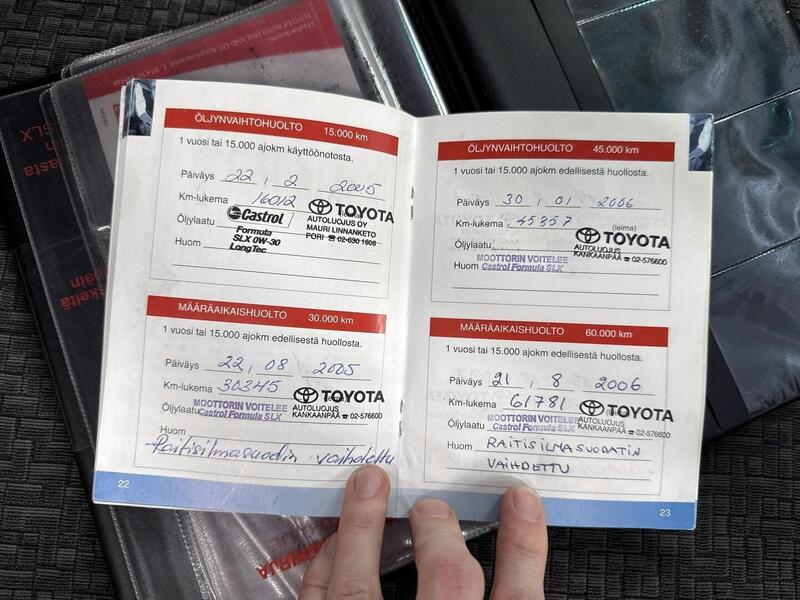 ÖLJYNVAIHTOHUOLTO 15.000 km
1 vuosi tai 15.000 ajokm käyttöönotosta.
Päiväys 22, 2 2005
Km-lukema 16012
Öljylaatu Castrol
Formula
SLX 0W-30
LongTec
(leima)
TOYOTA
AUTOLUOJUS OY
MAURI LINNANKETO
PORI ☎ 02-630 1608
Huom
MÄÄRÄAIKAISHUOLTO 30.000 km
1 vuosi tai 15.000 ajokm edellisestä huollosta.
Päiväys 22, 08 2005
Km-lukema 30345
Öljylaatu MOOTTORIN VOITELEE
Castrol Formula SLX
(leima)
TOYOTA
AUTOLUOJUS
KANKAANPÄÄ ☎ 02-576600
Huom
Raitisilmasuodin vaihdettu
22
ÖLJYNVAIHTOHUOLTO 45.000 km
1 vuosi tai 15.000 ajokm edellisestä huollosta.
Päiväys 30, 01 2006
Km-lukema 45857
(leima)
TOYOTA
AUTOLUOJUS
KANKAANPÄÄ ☎ 02-576600
Öljylaatu
MOOTTORIN VOITELEE
Huom Castrol Formula SLX
MÄÄRÄAIKAISHUOLTO 60.000 km
1 vuosi tai 15.000 ajokm edellisestä huollosta.
Päiväys 21, 8 2006
Km-lukema 61781
Öljylaatu MOOTTORIN VOITELEE
Castrol Formula SLX
(leima)
TOYOTA
AUTOLUOJUS
KANKAANPÄÄ ☎ 02-576600
Huom RAITISILMASUODATIN
VAIHDETTU
23